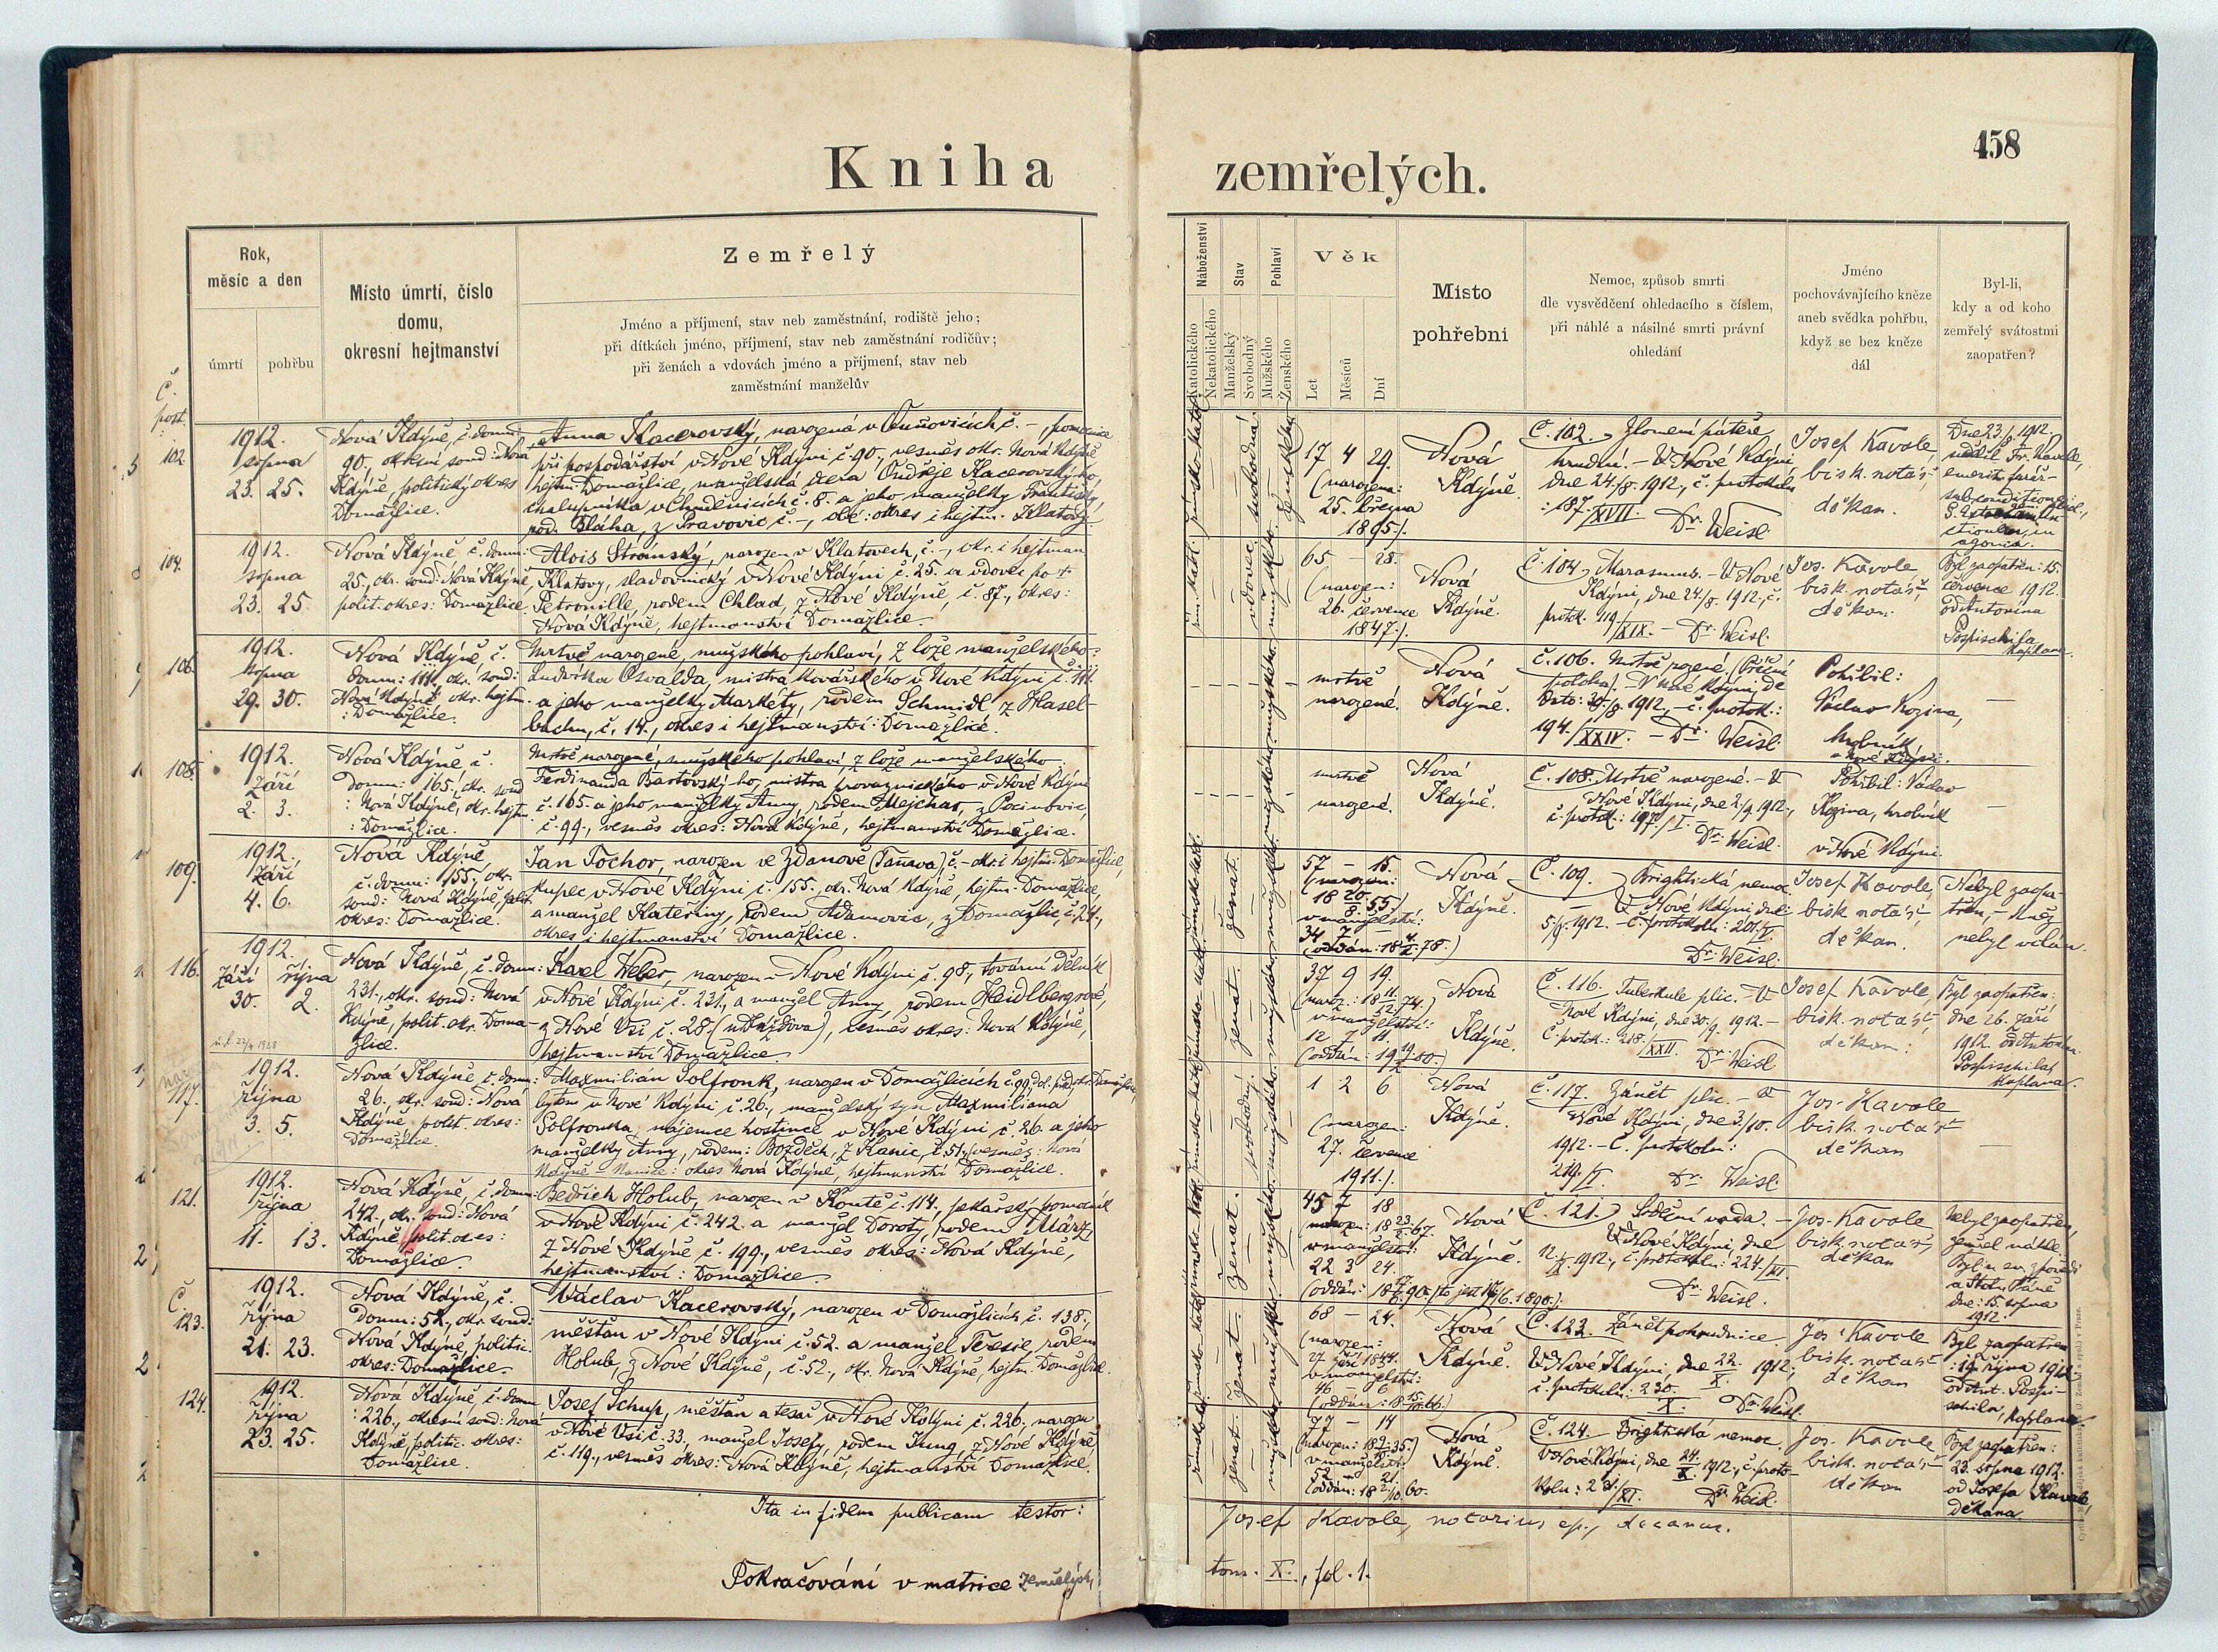 Kniha
zemřelých.
458
Rok,
měsíc a den
úmrtí
pohřbu
Místo úmrtí, číslo
domu,
okresní hejtmanství
Zemřelý
Jméno a příjmení, stav neb zaměstnání, rodiště jeho;
při dítkách jméno, příjmení, stav neb zaměstnání rodičův;
při ženách a vdovách jméno a příjmení, stav neb
zaměstnání manželův
Náboženství
Katolického
Nekatolického
Stav
Manželský
Svobodný
Pohlaví
Mužského
Ženského
Věk
Let
Měsíců
Dní
Místo
pohřební
Nemoc, způsob smrti
dle vysvědčení ohledacího s číslem,
při náhlé a násilné smrti právní
ohledání
Jméno
pochovávajícího kněze
aneb svědka pohřbu,
když se bez kněze
dál
Byl-li,
kdy a od koho
zemřelý svátostmi
zaopatřen?
Č.
post.
102.
1912.
srpna
23. 25.
Nová Kdýně, č. domu:
90., okresní soud: Nová
Kdýně, politický okres
Domažlice.
Anna Kacerovský, narozená v č. –, pomocnice
při hospodářství v Nové Kdýni č. 90., vesměs okr. Nová Kdýně
hejtm. Domažlice, manželská dcera Ondřeje Kacerovského,
chalupníka v Chuděnicích č. 8. a jeho manželky Františky,
rod. Bláha, z Pravovic č. –, obé: okres i hejtm. Klatovy.
17 4 29.
(narozena:
25. března
1895.).
Nová
Kdýně.
Č. 102. Zlomení páteře
hrudní. – V Nové Kdýni
dne 24./8. 1912., č. protokolu
: 187./XVII. Dr. Weisl.
Josef Kavale,
bisk. notář,
děkan.
Dne 23./8. 1912.
udělil Fr. Kavale,
emerit. farář
104.
1912.
srpna
23. 25.
Nová Kdýně č. domu:
25., okr. soud: Nová Kdýně,
polit. okres: Domažlice
Alois Stránský, narozen v Klatovech, č. –, okr. i hejtman.
Klatovy, sladovnický v Nové Kdýni č. 25. a vdovec po +
Petronille, rodem Chlad, z Nové Kdýně, č. 87., okres:
Nová Kdýně, hejtmanství Domažlice.
65 – 28.
(narozen:
26. července
1847.).
Nová
Kdýně.
Č. 104. Marasmus. – V Nové
Kdýni, dne 24./8. 1912., č.
protok. 119./XIX. – Dr. Weisl.
Jos. Kavale
bisk. notář,
děkan.
Byl zaopatřen: 15.
července 1912.
od Antonína
Pospischila,
kaplana.
106.
1912.
srpna
29. 30.
Nová Kdýně, č.
domu: 111., okr. soud:
Nová Kdýně, okr. hejtm.
: Domažlice.
Mrtvě narozené, mužského pohlaví, z lože manželského:
Ludvíka Osvalda, mistra kovářského v Nové Kdýni č. 111.
a jeho manželky Markéty, rodem Schmidl z Hasel-
bachu, č. 14., okres i hejtmanství: Domažlice.
mrtvě
narozené.
Nová
Kdýně.
Č. 106. Mrtvě rozené, (Příční
poloha). – V Nové Kdýni, de
dato: 30./8. 1912., – č. protok.:
194./XXIV. – Dr. Weisl.
Pohřbil:
Václav Kozina,
hrobník
v Nové Kdýni.
–
108.
1912.
září
2. 3.
Nová Kdýně č.
domu: 165., okr. soud
: Nová Kdýně, okr. hejtm.
: Domažlice.
Mrtvě narozené, mužského pohlaví, z lože manželského
Ferdinanda Bartovského, mistra provaznického v Nové Kdýni
č. 165. a jeho manželky Anny, rodem Mejchar, z Pocinovic,
č. 99., vesměs okres: Nová Kdýně, hejtmanství Domažlice.
mrtvě
narozené.
Nová
Kdýně.
Č. 108. Mrtvě narozené. – V
Nové Kdýni, dne 2./9. 1912.,
č. protok.: 197./I. –
Dr. Weisl.
Pohřbil: Václav
Kozina, hrobník
v Nové Kdýni.
–
109.
1912.
září
4. 6.
Nová Kdýně,
č. domu: 155., okr.
soud: Nová Kdýně, polit.
okres: Domažlice.
Jan Tochor, narozen ve Ždanově (Tanava) č. – okr. i hejtm. Domažlice,
kupec v Nové Kdýni č. 155., okr. Nová Kdýně, hejtm. Domažlice,
a manžel Kateřiny, rodem Adamovic, z Domažlic, č. 24.,
okres i hejtmanství Domažlice.
57 – 15.
(narozen:
18 20/8. 55.)
v manželství:
34 7 –
(oddán: 18 4/2. 78.)
Nová
Kdýně.
Č. 109. Brightická nemoc.
– V Nové Kdýni, dne:
5./9. 1912. – č. protokolu: 201./V.
Dr. Weisl.
Josef Kavale,
bisk. notář,
děkan.
Nebyl zaopa-
třen, – kněz
nebyl volán.
116.
1912.
září října
30. 2.
Nová Kdýně, č. domu:
231., okr. soud: Nová
Kdýně, polit. okr. Doma-
žlice.
Karel Weber, narozen v Nové Kdýni č. 98., tovární dělník
v Nové Kdýni č. 231., a manžel Anny, rodem Heidlbergrové,
z Nové Vsi č. 28. (u Kdýně), vesměs okres: Nová Kdýně,
hejtmanství Domažlice.
37 9 19.
(naroz.: 18 11/12. 74.)
v manželství:
12 7 11.
(oddán: 19 19/2. 00.)
Nová
Kdýně.
Č. 116. Tuberkule plic. – V
Nové Kdýni, dne 30./9. 1912. –
Č. protok.: 218./XXII. Dr. Weisl.
Josef Kavale,
bisk. notář,
děkan.
Byl zaopatřen:
dne 26. září
1912. od Antonína
Pospischila,
kaplana.
117.
1912.
října
3. 5.
Nová Kdýně, č. domu:
26. okr. soud: Nová
Kdýně, polit. okres:
Domažlice.
Maxmilián Solfronk, narozen v Domažlicích č. 99, dol. předm. Domažlice,
bytem v Nové Kdýni č. 26., manželský syn Maxmiliana
Solfronka, nájemce hostince v Nové Kdýni č. 26. a jeho
manželky Anny, rodem: Bozděch, z Kanic, č. 51., (vesměs: Nová
Kdýně – Kanice: okres Nová Kdýně, hejtmanství Domažlice.
1 2 6
(narozen:
27. července
1911.).
Nová
Kdýně.
Č. 117. Zánět plic. – V
Nové Kdýni, dne 3./10.
1912. – Č. protokolu:
219./I. Dr. Weisl.
Jos. Kavale
bisk. notář
děkan
–
121.
1912.
října
11. 13.
Nová Kdýně, č. domu:
242., okr. soud: Nová
Kdýně, polit. okres:
Domažlice.
Bedřich Holub, narozen v Koutě č. 114., pekařský pomocník
v Nové Kdýni č. 242. a manžel Doroty, rodem März
z Nové Kdýně č. 199., vesměs okres: Nová Kdýně,
hejtmanství: Domažlice.
45 7 18
(narozen: 18 23/2. 67.
v manželství:
22 3 24.
(oddán: 18 17/6. 90. (to jest 17./6. 1890.).
Nová
Kdýně.
Č. 121. Srdeční vada. –
V Nové Kdýni, dne
12./X. 1912., č. protokolu: 224./XI.
Dr. Weisl.
Jos. Kavale
bisk. notář,
děkan
Nebyl zaopatřen,
zemřel náhle.
Byl u sv. zpovědi
a Stolu Páně
dne: 15. srpna
1912.
Č.
123.
1912.
října
21. 23.
Nová Kdýně, č.
domu: 52., okr. soud:
Nová Kdýně, politic.
okres: Domažlice.
Václav Kacerovský, narozen v Domažlicích, č. 138.,
měšťan v Nové Kdýni č. 52. a manžel Teresie, rodem
Holub, z Nové Kdýně, č. 52., okr. Nová Kdýně, hejtm. Domažlice.
68 – 24.
(narozen:
27. září 1844.
v manželství:
46 – 6
(oddán: 18 15/10. 66.)
Nová
Kdýně.
Č. 123. Zánět pohrudnice.
V Nové Kdýni, dne 22./X. 1912.,
č. protokolu: 230./X. Dr. Weisl.
Jos. Kavale
bisk. notář
děkan
Byl zaopatřen
: 19. října 1912.
od Ant. Pospi-
schila, kaplana.
124.
1912.
října
23. 25.
Nová Kdýně, č. domu
: 226., okresní soud: Nová
Kdýně, politic. okres:
Domažlice.
Josef Schup, měšťan a tesař v Nové Kdýni č. 226., narozen
v Nové Vsi č. 33., manžel Josefy, rodem Jung, z Nové Kdýně
č. 119., vesměs okres: Nová Kdýně, hejtmanství Domažlice.
77 – 14
(narozen: 18 9/10. 35.)
v manželství:
52 – 21.
(oddán: 18 2/10. 60.
Nová
Kdýně.
Č. 124. Brightická nemoc.
V Nové Kdýni, dne 24./X. 1912., č. proto-
kolu: 231./XI. Dr. Weisl.
Jos. Kavale
bisk. notář
děkan
Byl zaopatřen:
23. srpna 1912.
od Josefa Kavale,
děkana.
Ita in fidem publicam testor:
Josef Kavale, notarius ep., decanus.
Pokračování v matrice zemřelých,
tom. X., fol. 1.